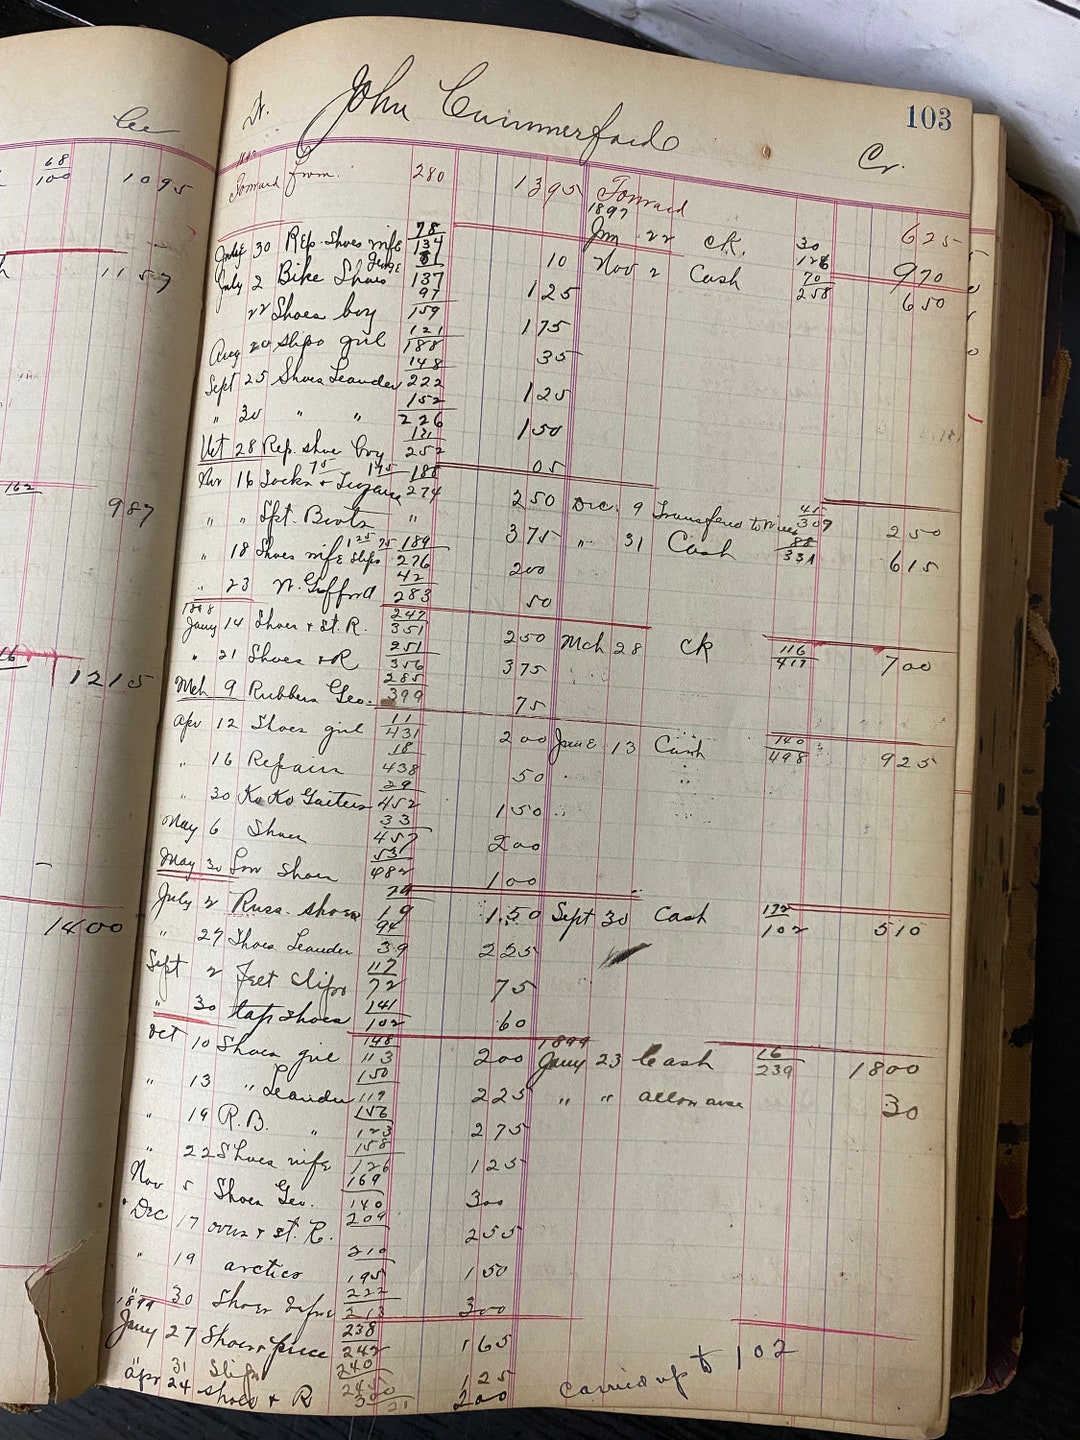 Cr
68
100 1095
1157
162
987
16
1215
1400
Dr. John Cummerford Cr. 103
Forward from. 280 1395 Forward 625
1897
Jan 22 ck. 30 126 970
June 30 Rep. Shoes wife 78 134 10 Nov 2 Cash 70 258 650
July 2 Bike Shoes George 81 137 125
" 22 Shoes boy 97 159 175
Aug 20 Slips girl 121 188 35
Sept 25 Shoes Leander 148 222 125
" 30 " " 152 226 150
Oct 28 Rep. shoe boy 171 252 05
Nov 16 Socks + 75 175 188 274 250 Dec. 9 Transfered to 45 309 250
" " Spt. Boots " 375 " 31 Cash 88 331 615
" 18 Shoes wife 125 Slips 75 189 276 200
" 23 N. Gifford 42 283 50
1898
Jany 14 Shoes + st. R. 247 351 250 Mch 28 CK 116 417 700
" 21 Shoes + R 251 356 375
Mch 9 Rubbers Geo. 285 399 75
Apr 12 Shoes girl 11 431 200 June 13 Cash 140 498 925
" 16 Repairs 18 438 50
" 30 Ko Ko Gaiters 29 452 150
May 6 Shoes 33 457 200
May 30 Low Shoes 53 482 100
July 2 Russ. shoes 74 19 1.50 Sept 30 Cash 132 102 510
" 27 Shoes Leander 94 39 225
Sept 2 Felt slips 117 72 75
" 30 tap shoes 141 102 60
1899
Oct 10 Shoes girl 148 113 200 Jany 23 Cash 16 239 1800
" 13 " Leander 150 117 225 " " allowance 30
" 19 R.B. " 156 123 275
" 22 Shoes wife 158 126 125
Nov 5 Shoes Geo. 169 140 300
Dec 17 overs + st. R. 209 255
" 19 arctics 210 195 150
" 30 Shoes 222 213 300
1899
Jany 27 Shoes + price 238 242 165
" 31 Slips 240 245 125 Carried up to 102
Apr 24 shoes + R 300 21 200